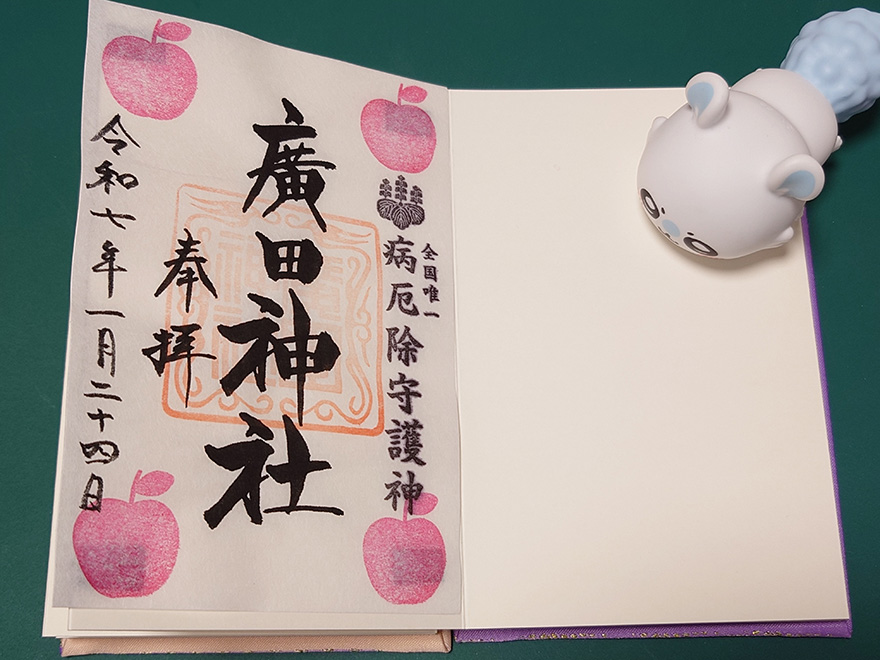 全国唯一
病厄除守護神
廣田神社
奉拝
令和七年一月二十四日